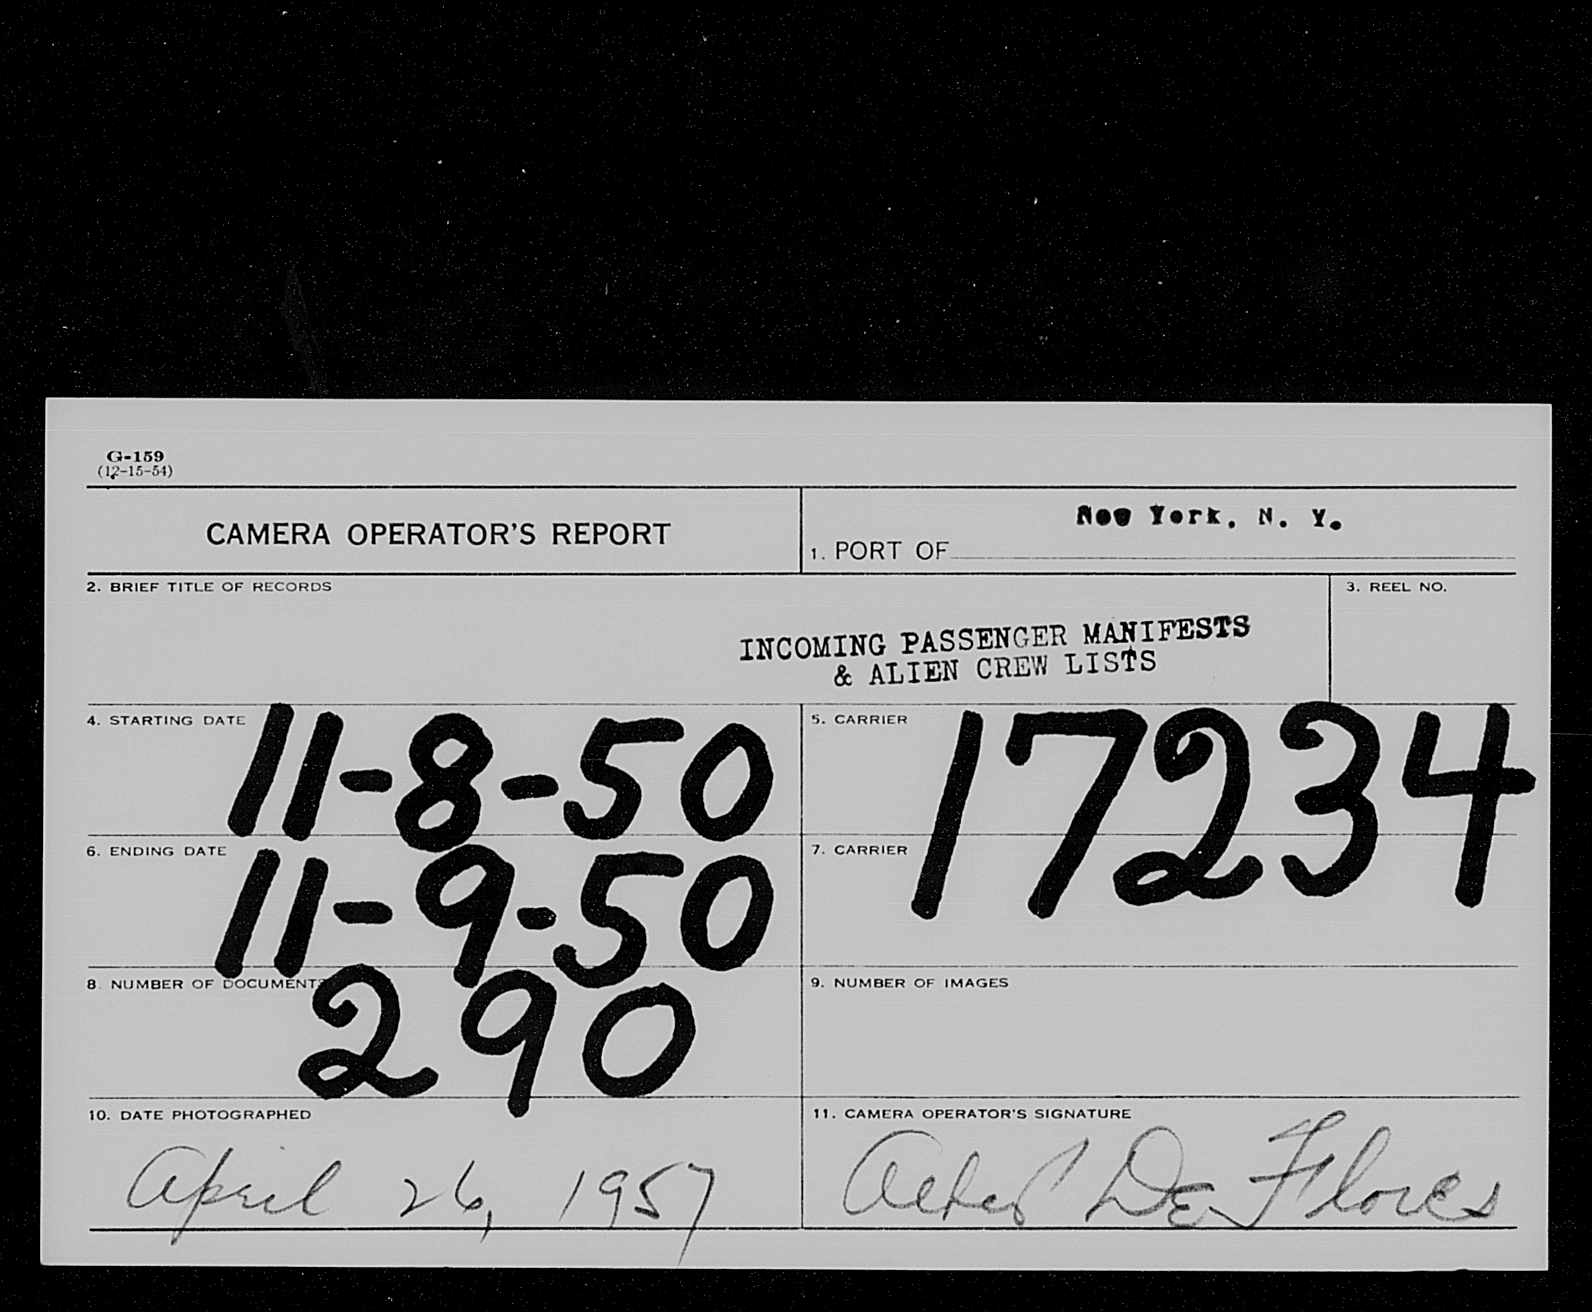 G-159
(12-15-54)
CAMERA OPERATOR'S REPORT
New York, N. Y.
1. PORT OF
2. BRIEF TITLE OF RECORDS
3. REEL NO.
INCOMING PASSENGER MANIFESTS
& ALIEN CREW LISTS
4. STARTING DATE
11-8-50
5. CARRIER
17234
6. ENDING DATE
11-9-50
7. CARRIER
8. NUMBER OF DOCUMENTS
290
9. NUMBER OF IMAGES
10. DATE PHOTOGRAPHED
April 26, 1957
11. CAMERA OPERATOR'S SIGNATURE
De Flores